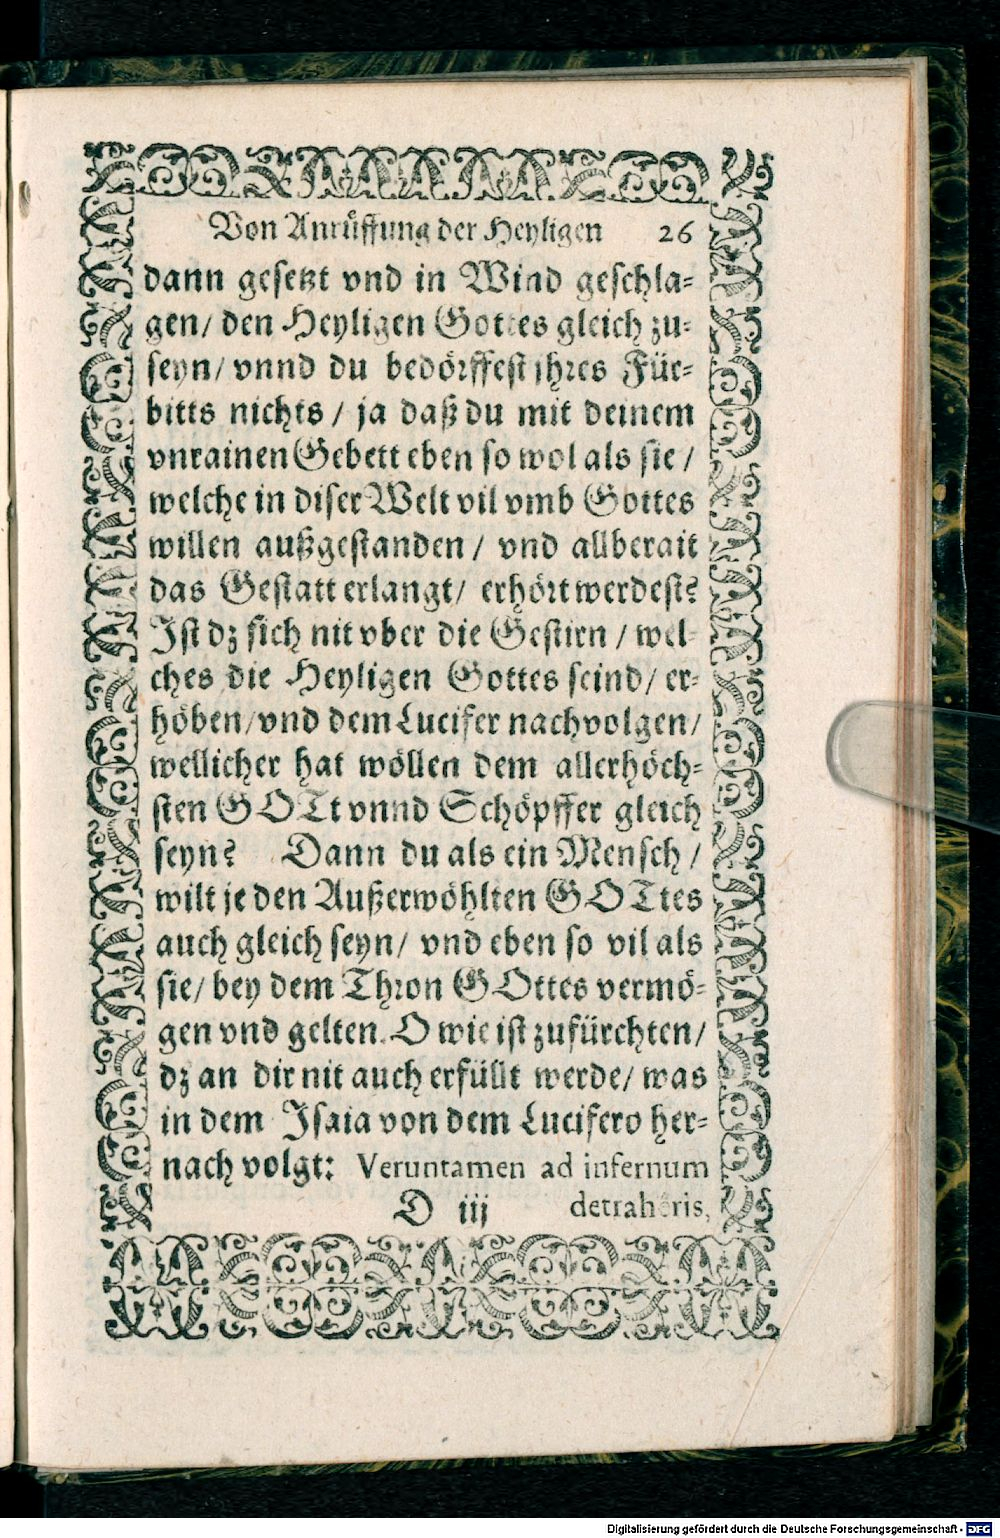 Von Anrüffung der Heyligen 26
dann gesetzt vnd in Wind geschla-
gen/ den Heyligen Gottes gleich zu-
seyn/ vnnd du bedörffest jhres Für-
bitts nichts/ ja daß du mit deinem
vnrainen Gebett eben so wol als sie/
welche in diser Welt vil vmb Gottes
willen außgestanden/ vnd allberait
das Gestatt erlangt/ erhört werdest?
Ist dz sich nit vber die Gestirn/ wel-
ches die Heyligen Gottes seind/ er-
höben/ vnd dem Lucifer nachvolgen/
wellicher hat wöllen dem allerhöch-
sten GOTt vnnd Schöpffer gleich
seyn? Dann du als ein Mensch/
wilt je den Außerwöhlten GOTtes
auch gleich seyn/ vnd eben so vil als
sie/ bey dem Thron GOttes vermö-
gen vnd gelten. O wie ist zufürchten/
dz an dir nit auch erfüllt werde/ was
in dem Isaia von dem Lucifero her-
nach volgt: Veruntamen ad infernum
D iij detrahêris,
Digitalisierung gefördert durch die Deutsche Forschungsgemeinschaft - DFG